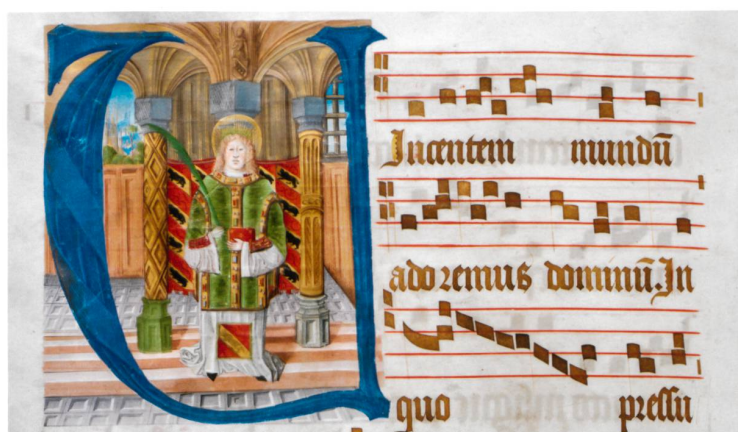 Vincentem mundū
adoremus dominū. In
quo pressu